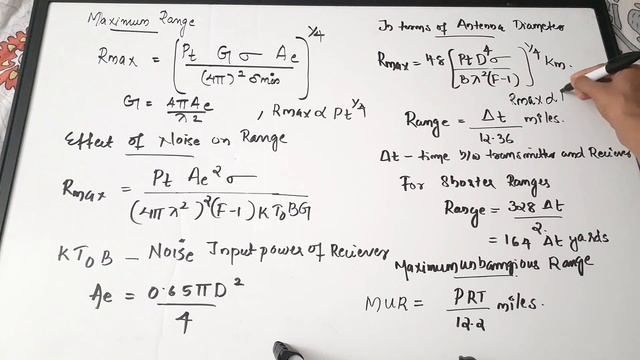 Maximum Range
Rmax = [Pt G σ Ae / (4π)² σmin]^1/4
G = 4πAe / λ² , Rmax ∝ Pt^1/4
Effect of Noise on Range
Rmax = Pt Ae² σ / (4πλ²)² (F-1) KT₀BG
KT₀B - Noise Input power of Reciever
Ae = 0.65πD² / 4
In terms of Antenna Diameter
Rmax = 48 [Pt D⁴ σ / Bλ²(F-1)]^1/4 Km.
Rmax ∝
Range = Δt / 12.36 miles.
Δt - time b/w transmitter and Reciever
For Shorter Ranges
Range = 328 Δt / 2.
= 164 Δt yards
Maximum unbamgious Range
MUR = PRT / 12.2 miles.